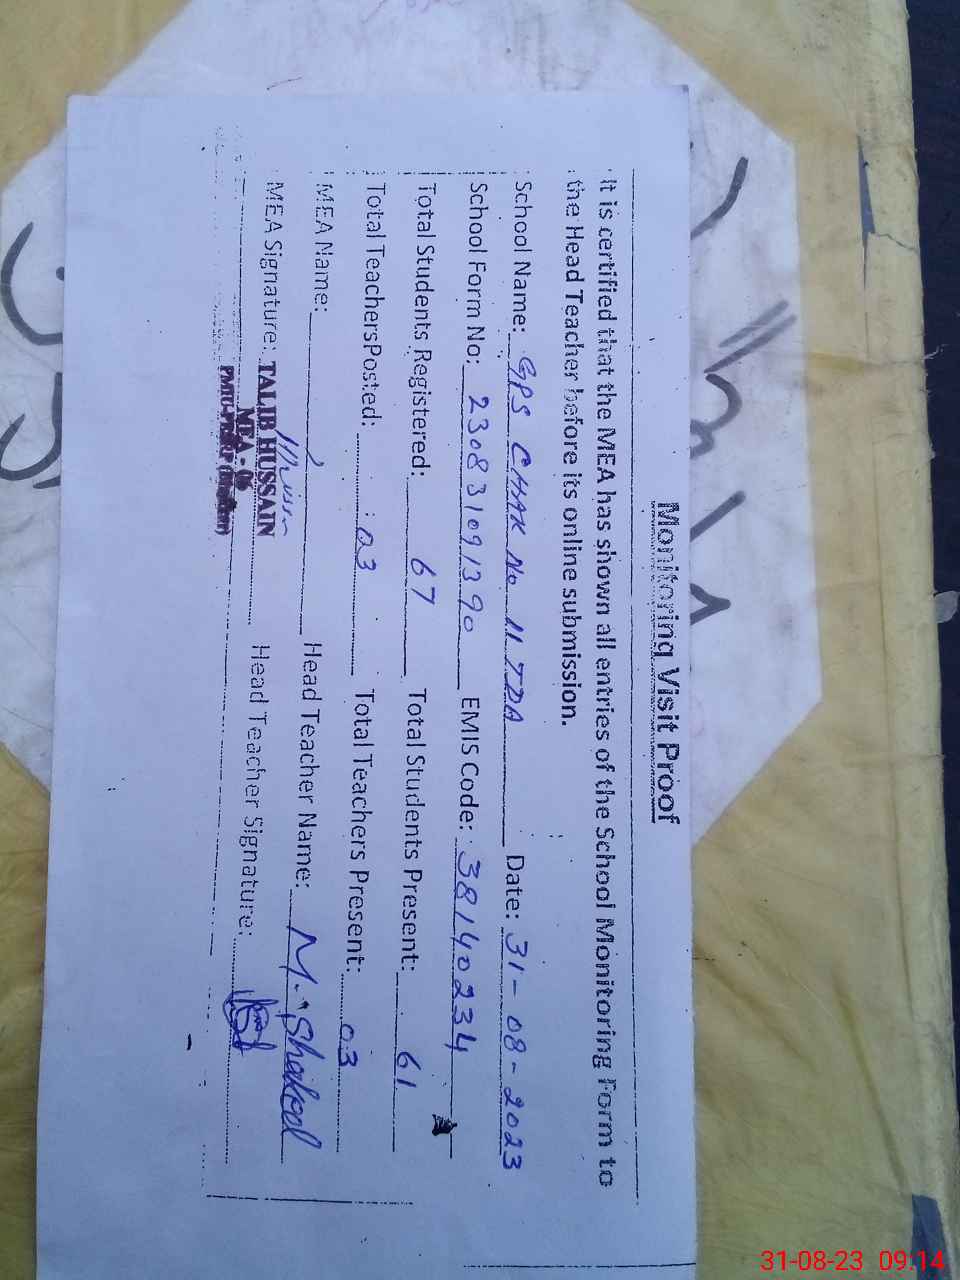 Monitoring Visit Proof
It is certified that the MEA has shown all entries of the School Monitoring Form to
the Head Teacher before its online submission.
School Name: GPS CHAK No 11 TDA Date: 31-08-2023
School Form No: 230831091390 EMIS Code: 38140234
Total Students Registered: 67 Total Students Present: 61
Total TeachersPosted: 03 Total Teachers Present: 03
MEA Name: Head Teacher Name: M. Shakeel
MEA Signature: TALIB HUSSAIN Head Teacher Signature:
MEA - 06
31-08-23 09:14